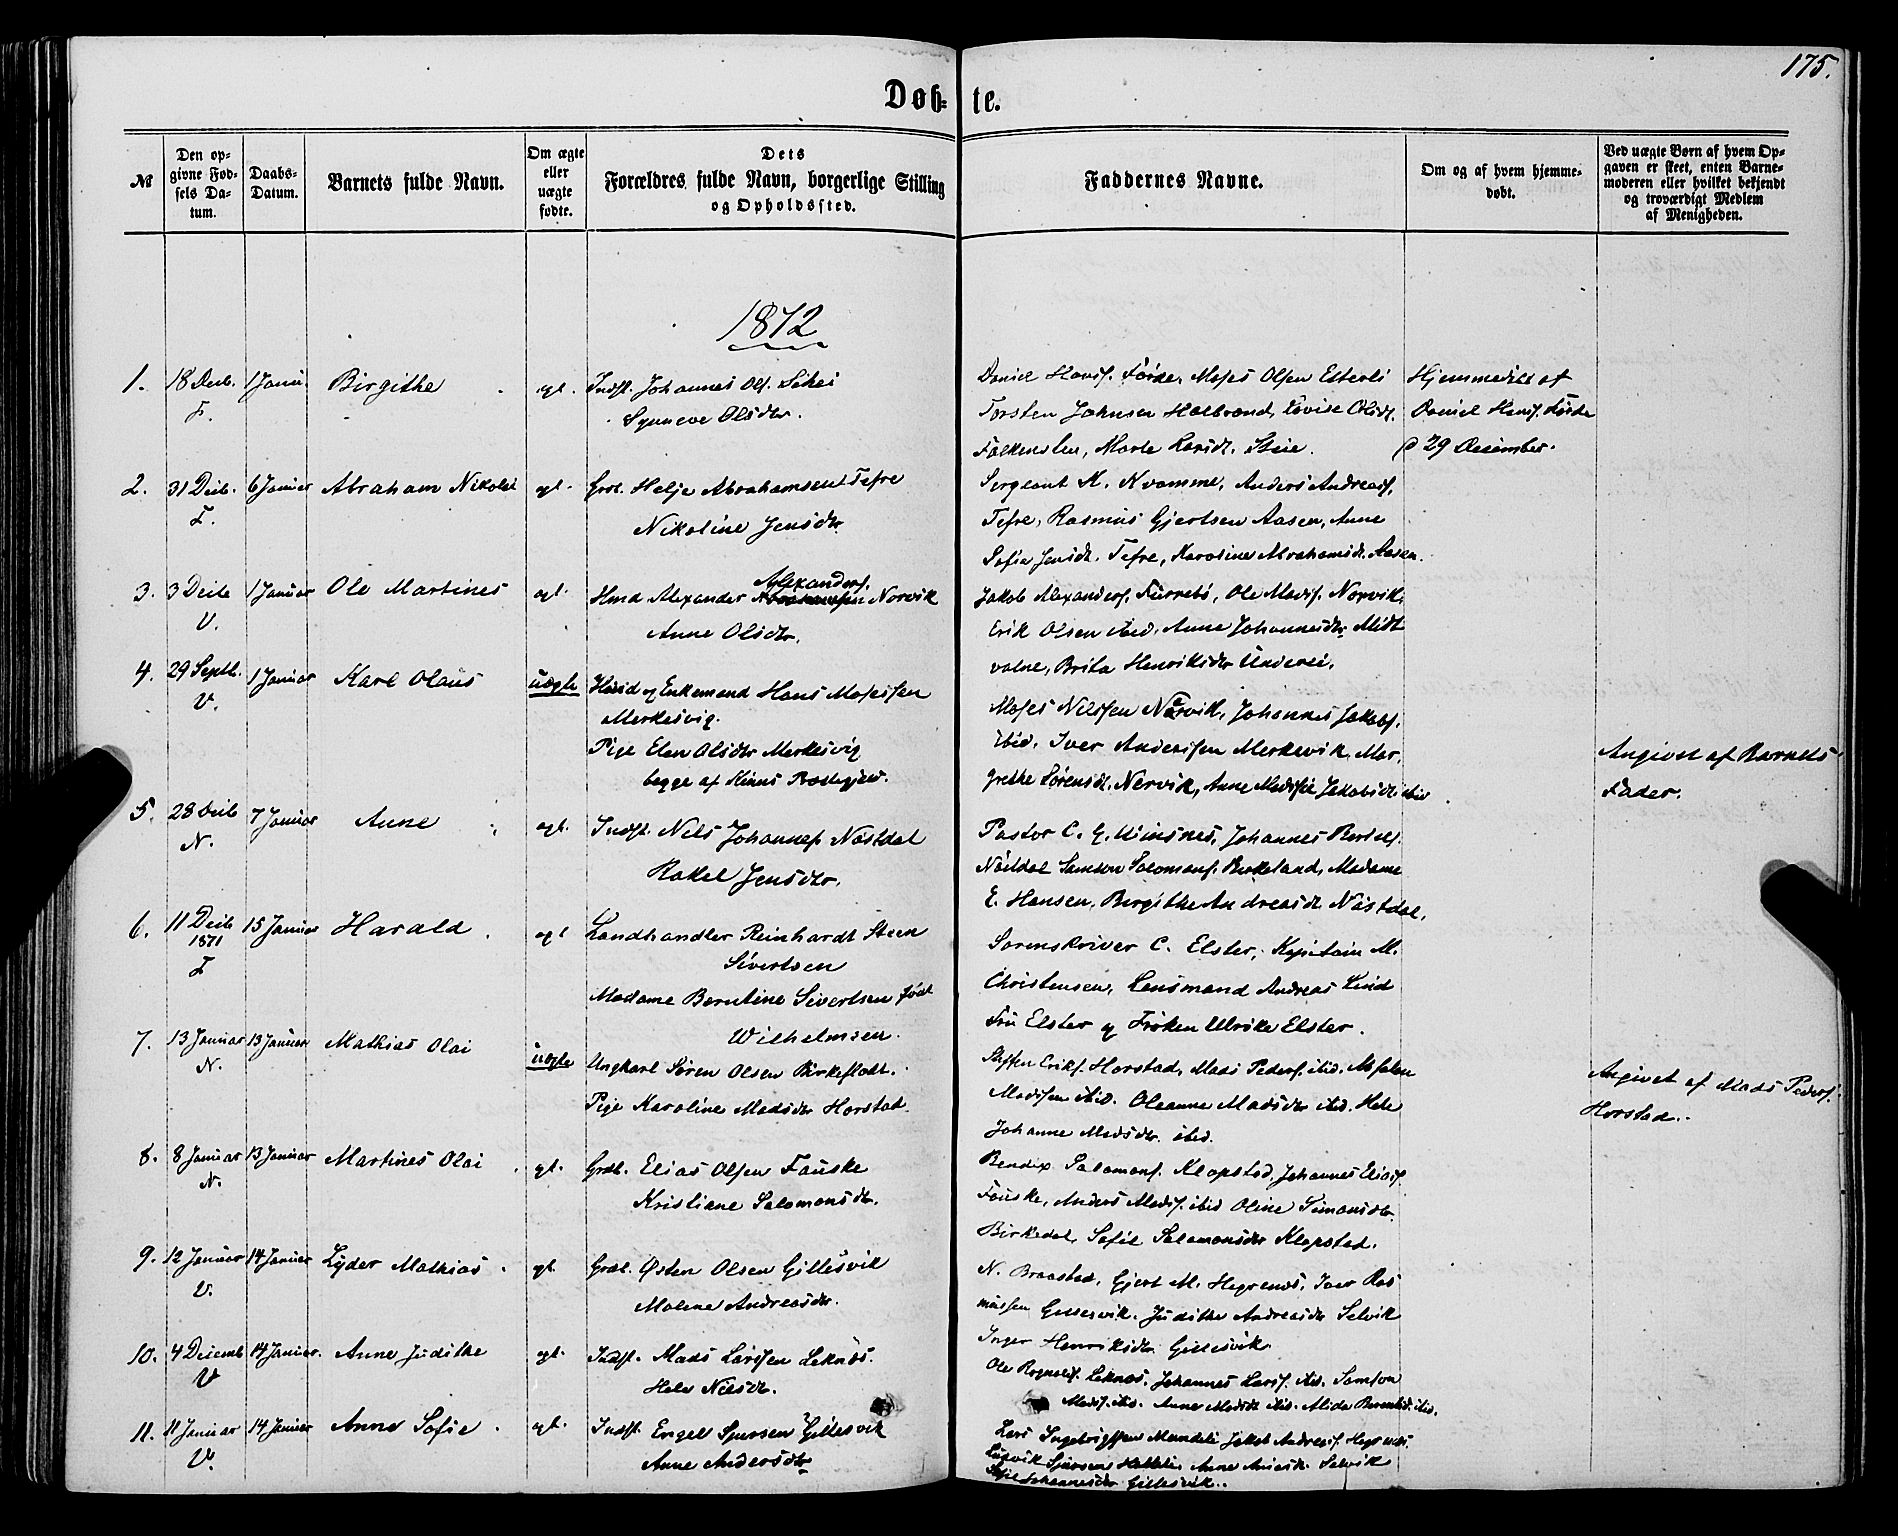 175.
Døb- te.
№
Den opgivne Fødsels Datum.
Daabs-Datum.
Barnets fulde Navn.
Om ægte eller uægte fødte.
Dets Forældres fulde Navn, borgerlige Stilling og Opholdssted.
Faddernes Navne.
Om og af hvem hjemmedøbt.
Ved uægte Børn af hvem Opgaven er skeet, enten Barnemoderen eller hvilket bekjendt og troværdigt Medlem af Menigheden.
1872
1. 18 Decb. 1 Januar Birgithe ægt. Indst. Johannes Ols.
F. Synneve Olsdtr.
Daniel Hansf. Førde, Moses Olsen Esterli
Torsten Johnsen Halbrand, Lovise
Falkensten, Marte Larsdt.
Hjemmedøbt af
Daniel Hansf. Førde
d 29 December.
2. 31 Decb. 6 Januar Abraham Nikolai ægt. Grdl. Helje Abrahamsen Tefre
F. Nikoline Jensdtr.
Sergeant K. Kvamme, Anders Andreasf.
Tefre, Rasmus Gjertsen Aasen, Anne
Sofie Jensdt. Tefre, Karoline Abrahamsdt. Aasen.
3. 3 Decb 1 Januar Ole Martines ægt. Hmd Alexander Alexandersf. Norvik
V. Anne Olsdtr.
Jakob Alexandersf. Furrebø, Ole Madsf. Norvik,
Erik Olsen ibid. Anne Johannesdtr. Midt
valne, Brita Henriksdtr
4. 29 Septb. 1 Januar Karl Olaus uægte Enkemand Hans Mosessen
V. Merkesvig.
Pige Elen Olsdtr Merkesvig
begge af Kinns Præstegjeld.
Moses Nilssen Nørvik, Johannes Jakobs.
ibid. Iver Anderssen Merkevik, Mar
grethe Sørensdt. Nervik, Anne Jakobsdt ibid
Angivet af Barnets
Fader.
5. 28 Decb 7 Januar Anne ægt. Indst. Nils Johannesf. Nøstdal
N. Rakel Jensdtr.
Pastor C. G. Johannes
Nøstdal Samson Salomonsf. Birkeland, Madame
E. Hansen, Birgithe Andreasdt. Nøstdal.
6. 11 Decb 15 Januar Harald ægt Landhandler Reinhardt Steen
1871
F Sivertsen
Madame Berntine Sivertsen født
Wilhelmsen.
Sorenskriver C. Elster, Kapitain M.
Christensen, Lensmand Andreas Lind
Fru Elster og Frøken Ulrike Elster.
7. 13 Januar 13 Januar Mathias Olai uægte Ungkarl Søren Olsen Birkeflodt.
N. Pige Karoline Madsdtr Horstad.
Steffen Eriks. Horstad, Mads Peders. ibid. Absalon
Madssen ibid. Oleanne Madsdtr ibid. Hele
Johanne Madsdtr. ibid.
Angivet af Mads Peders.
Horstad.
8. 8 Januar 13 Januar Martines Olai ægt. Grdl. Elias Olsen Fauske
N. Kristiane Salomonsdtr.
Bendix Salomonsf. Klopstad, Johannes Eliasf.
Fauske, Anders Madsf. ibid Oline Simonsdtr.
Birkedal, Sofie Salomonsdtr Klopstad.
9. 12 Januar 14 Januar Lyder Mathias ægt. Grdl. Østen Olsen Gillesvik
V. Malene Andreasdtr.
N. Braastad, Gjert M. Hegrenes, Iver Ras
mussen Gillesvik. Judithe Andreasdtr Selvik
Inger Henriksdtr. Gillesvik.
10. 4 Decemb 14 Januar. Anne Judithe ægt. Indst. Mads Larssen Leknes.
V Hele Nilsdtr.
Ole Leknes. Johannes Larsf. ibid. Samson
Madsf. ibid. Anne Madsdt ibid. Alida ibid.
11. 11 Januar 14 Januar Anne Sofie ægt. Indst. Engel Gillesvik
V. Anne Andersdtr
Lars Jakob Andreasf. Hegrenes.
Ludvik Anne Selvik
Sofie Johannesdtr Gillesvik.